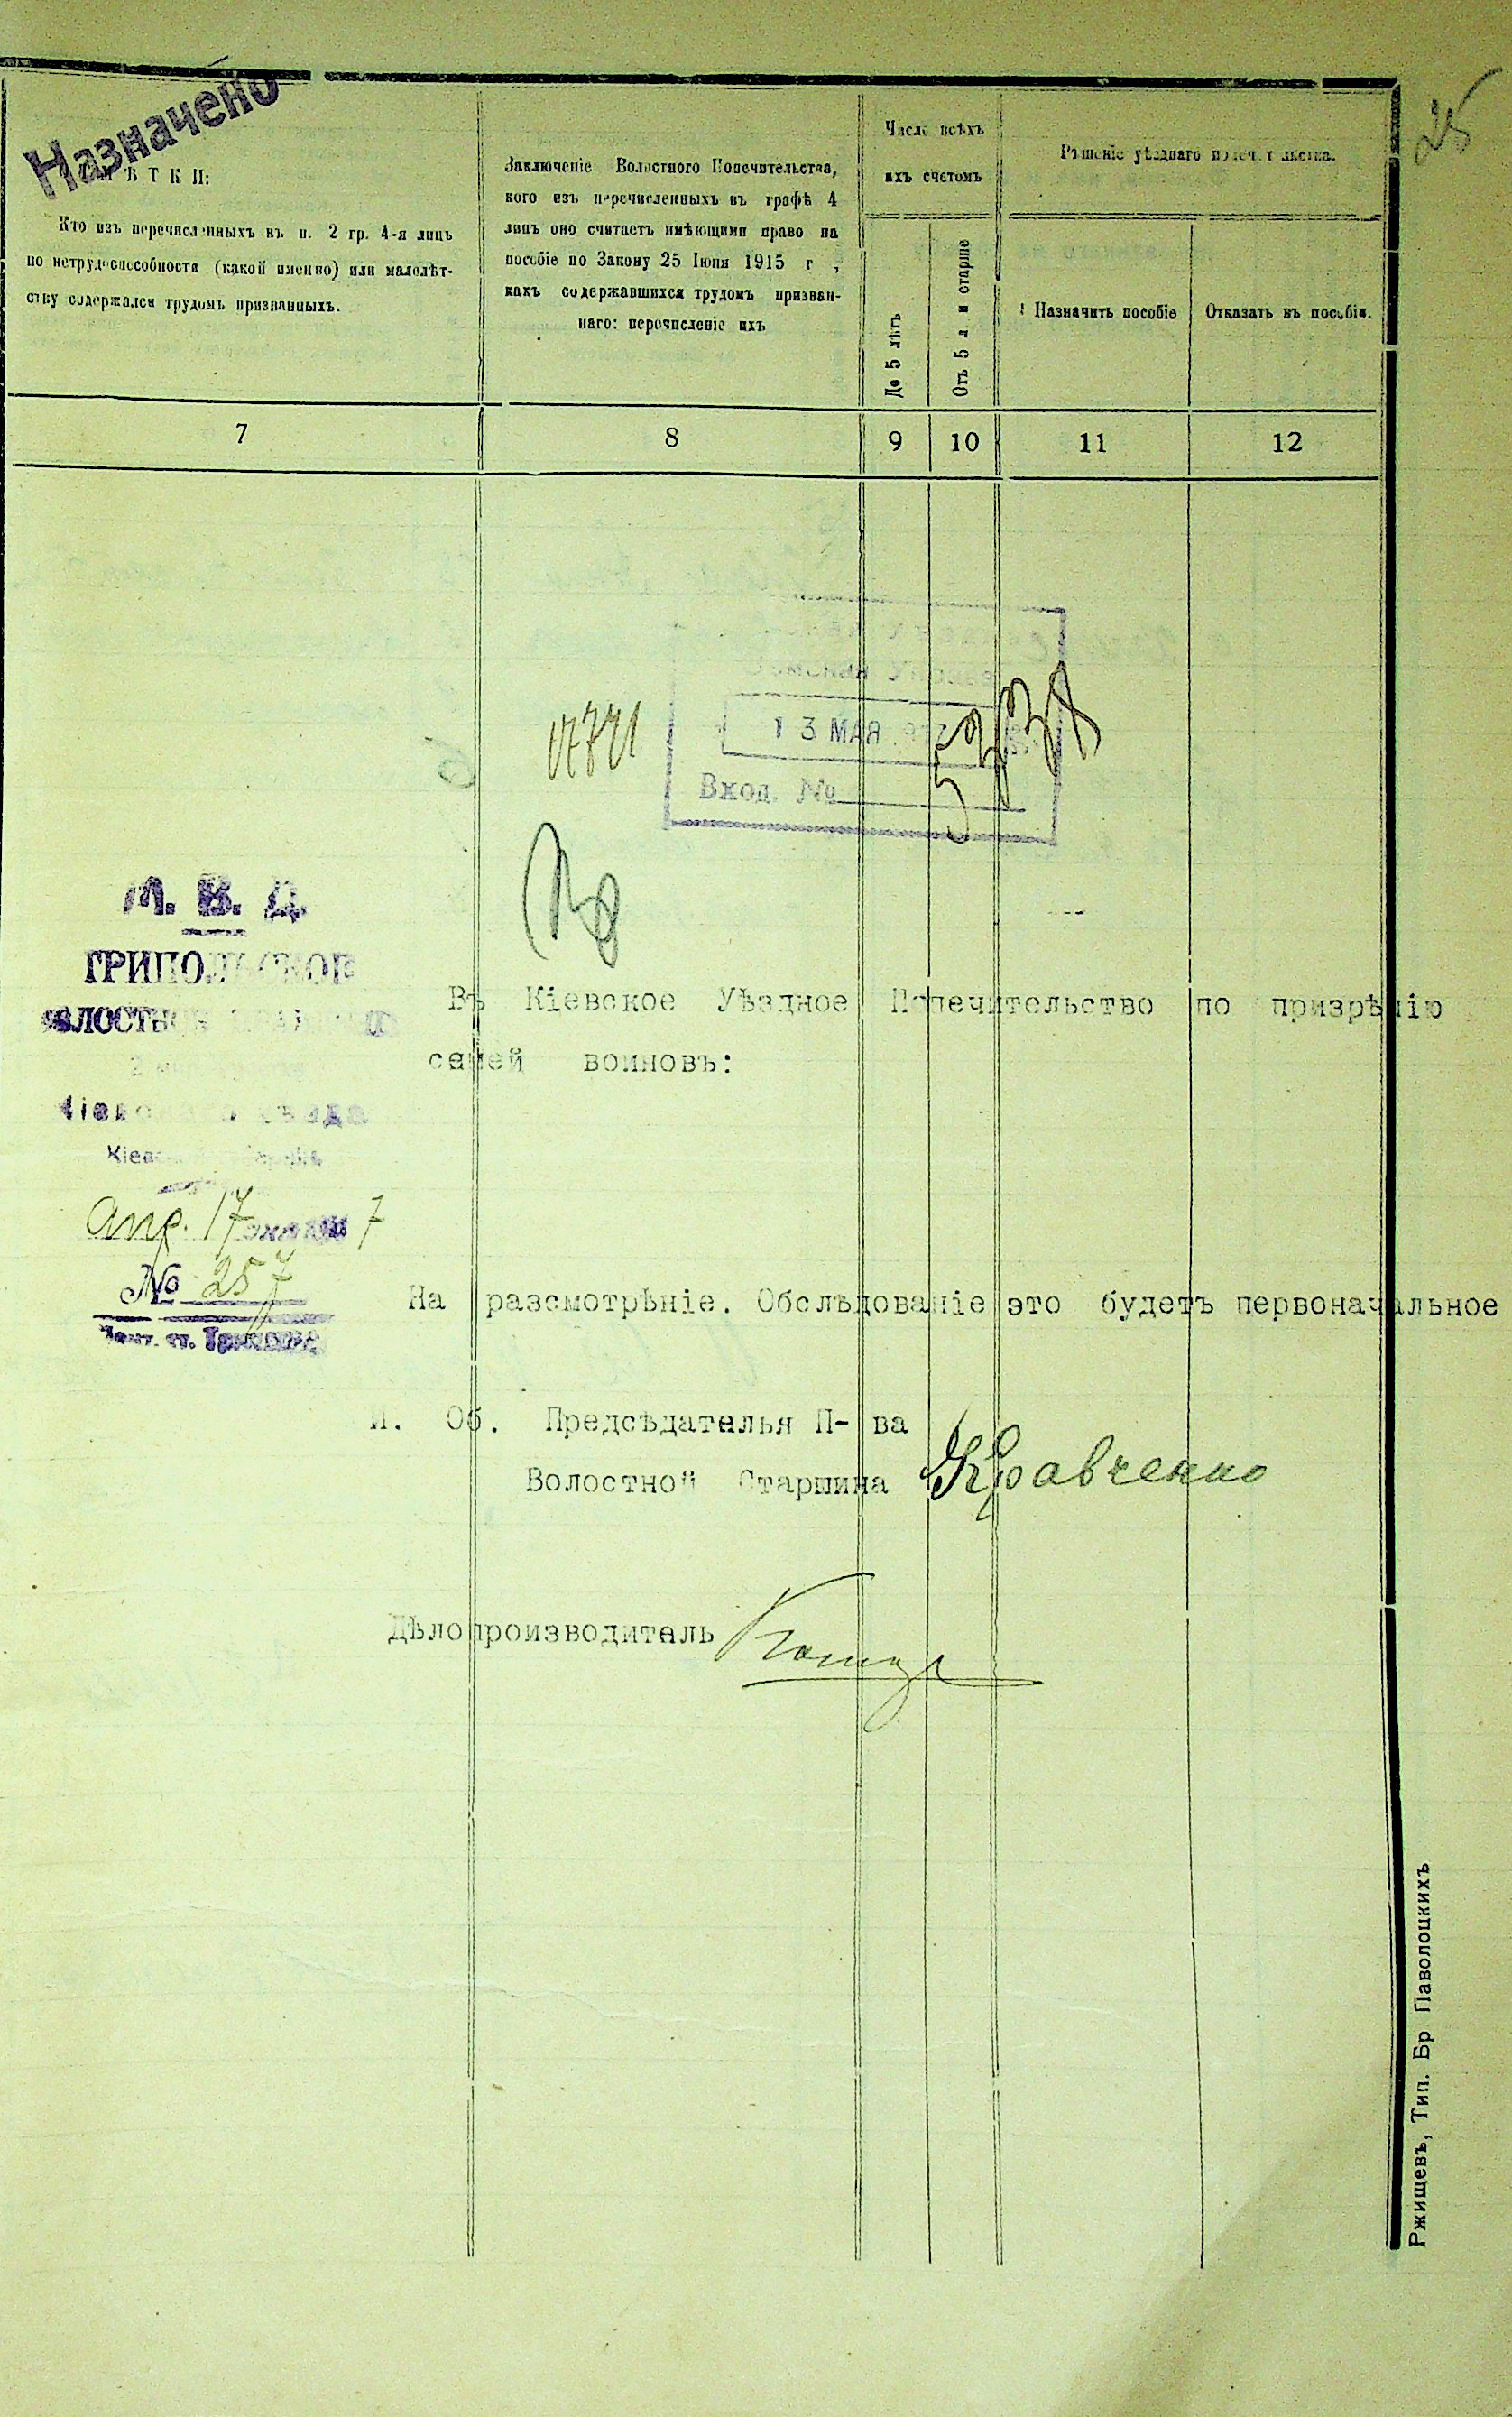 Назначено
25
Кто изъ перечисленныхъ въ п. 2 гр. 4-я лицъ
по нетрудоспособности (какой именно) или малолѣт-
ству содержался трудомъ призванныхъ.
Заключеніе Волостного Попечительства,
кого изъ перечисленныхъ въ графѣ 4
лицъ оно считаетъ имѣющими право на
пособіе по Закону 25 Іюня 1915 г ,
какъ содержавшихся трудомъ призван-
наго: перечисленіе ихъ
Число всѣхъ
ихъ счетомъ
До 5 лѣтъ
Отъ 5 л и старше
Рѣшеніе уѣзднаго попечительства.
Назначить пособіе
Отказать въ пособіи.
7 8 9 10 11 12
13 МАЯ
Вход. №
М. В. Д.
ТРИПОЛЬСКОЕ
Апр. 17 7
№ 257
Въ Кіевское Уѣздное Попечительство по призрѣнію
семей воиновъ:
На разсмотрѣніе. Обслѣдованіе это будетъ первоначальное
И. Об. Предсѣдателья П-ва
Волостной Старшина Кравченко
Дѣлопроизводитель
Ржищевъ, Тип. Бр Паволоцкихъ